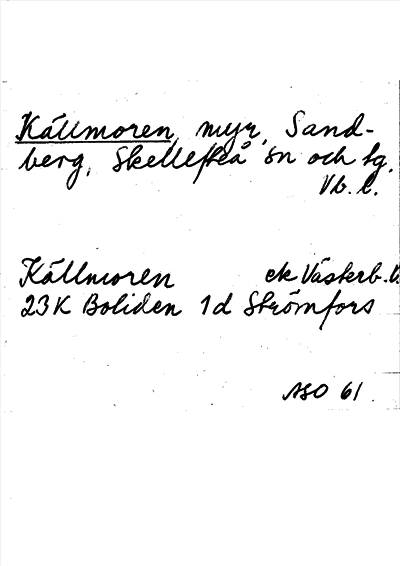 Källmoren, myr, Sand-
berg, Skellefteå sn och tg,
Vb. l.
Källmoren ek Västerb. l.
23K Boliden 1d Strömfors
ASO 61